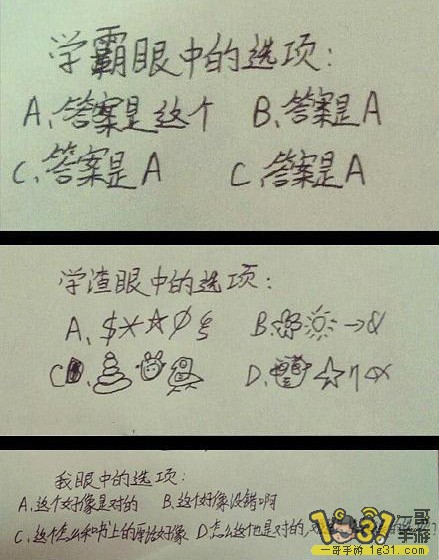 学霸眼中的选项:
A、答案是这个 B、答案是A
C、答案是A C、答案是A
学渣眼中的选项:
A、$
B、
C、
D、
我眼中的选项:
A、这个好像是对的 B、这个好像没错啊
C、这个怎么和书上的原话好像 D、怎么这也是对的
一哥手游
一哥手游 1g31.com